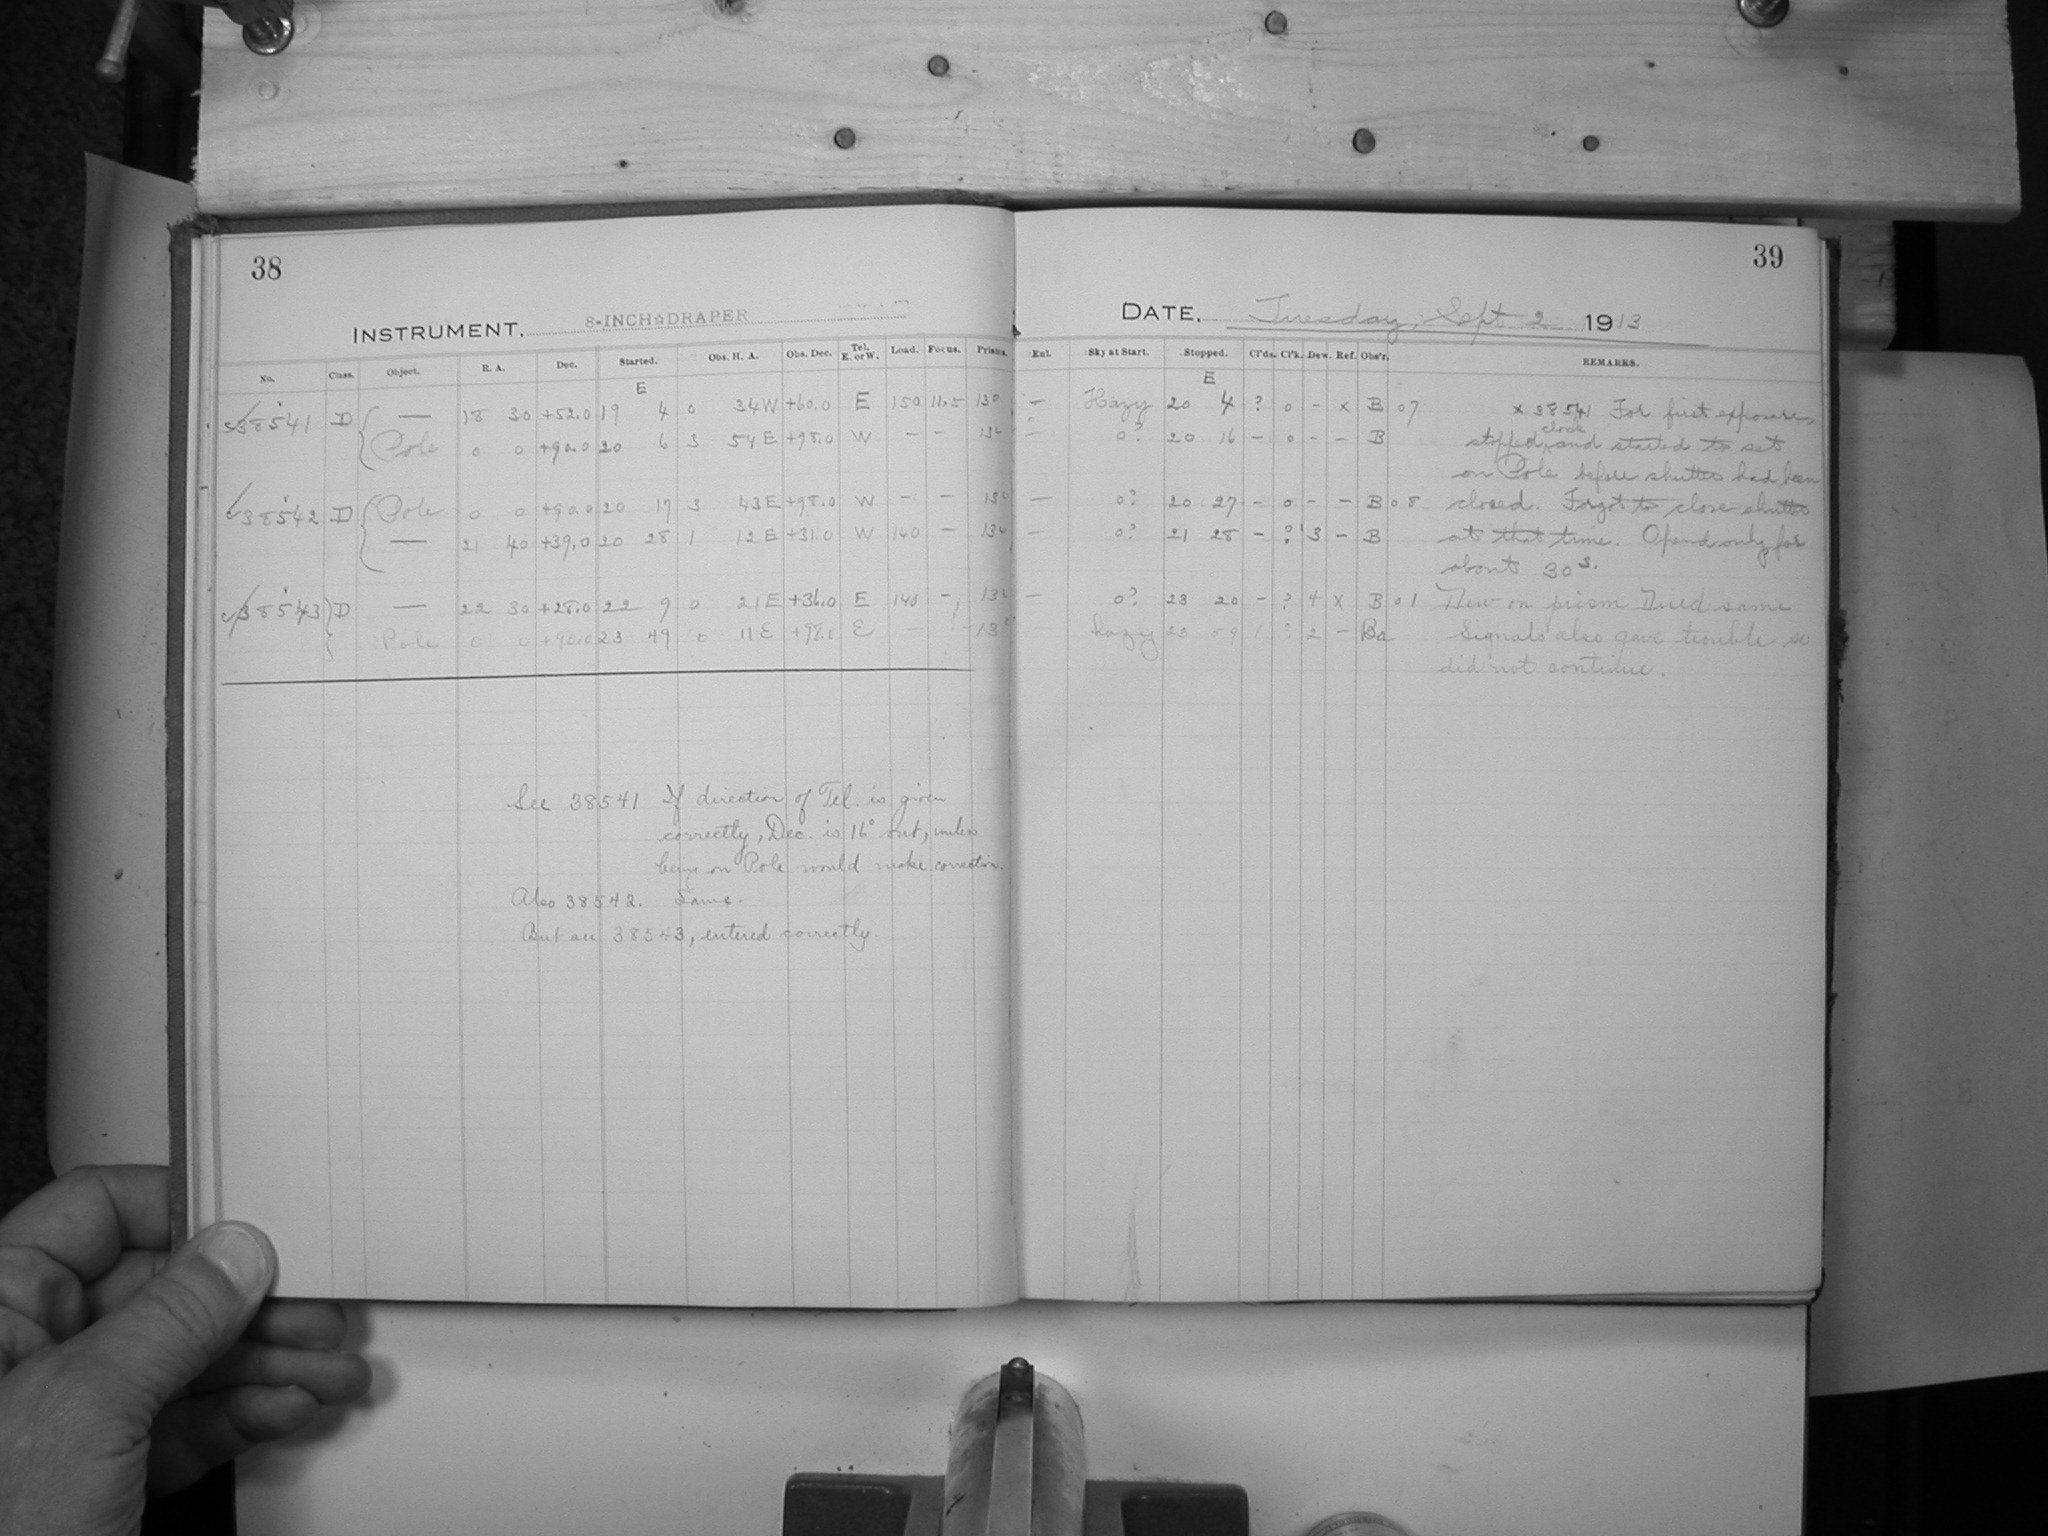 38
INSTRUMENT. 8-INCH☆DRAPER
No. Class. Object. R. A. Dec. Started. Obs. H. A. Obs. Dec. Tel. E. or W. Load. Focus. Prisms.
E
38541 D — 18 30 +52.0 19 4 0 34 W +60.0 E 150 11.5 130
Pole 0 0 +90.0 20 6 3 54 E +98.0 W — —
38542 D Pole 0 0 +90.0 20 17 3 43 E +98.0 W — —
— 21 40 +39.0 20 28 1 12 E +31.0 W 140 —
38543 D — 22 30 +28.0 22 9 0 21 E +36.0 E 140 —
Pole 0 0 +90.0 23 49 0 11 E +98. E —
See 38541 If direction of Tel. is given
correctly, Dec. is 16° out, unless
being on Pole would make correction.
Also 38542. Same.
But see 38543, entered correctly.
39
DATE. Tuesday, Sept 2 1913
Exl. Sky at Start. Stopped. Cl'ds. Cl'k. Dew. Ref. Obs'r. REMARKS.
E
— Hazy 20 4 ? 0 - x B 07 x 38541 For first exposure,
— 0? 20 16 - 0 - - B stopped clock and started to set
on Pole before shutter had been
— 0? 20 27 - 0 - - B 08 closed. Forgot to close shutter
— 0? 21 28 - ? 3 - B at that time. Opend only for
about 30s.
— 0? 23 20 - ? 4 x B 01 Dew on prism Dried same
— hazy 23 59 1 ? 2 - Ba Signals also gave trouble so
did not continue.